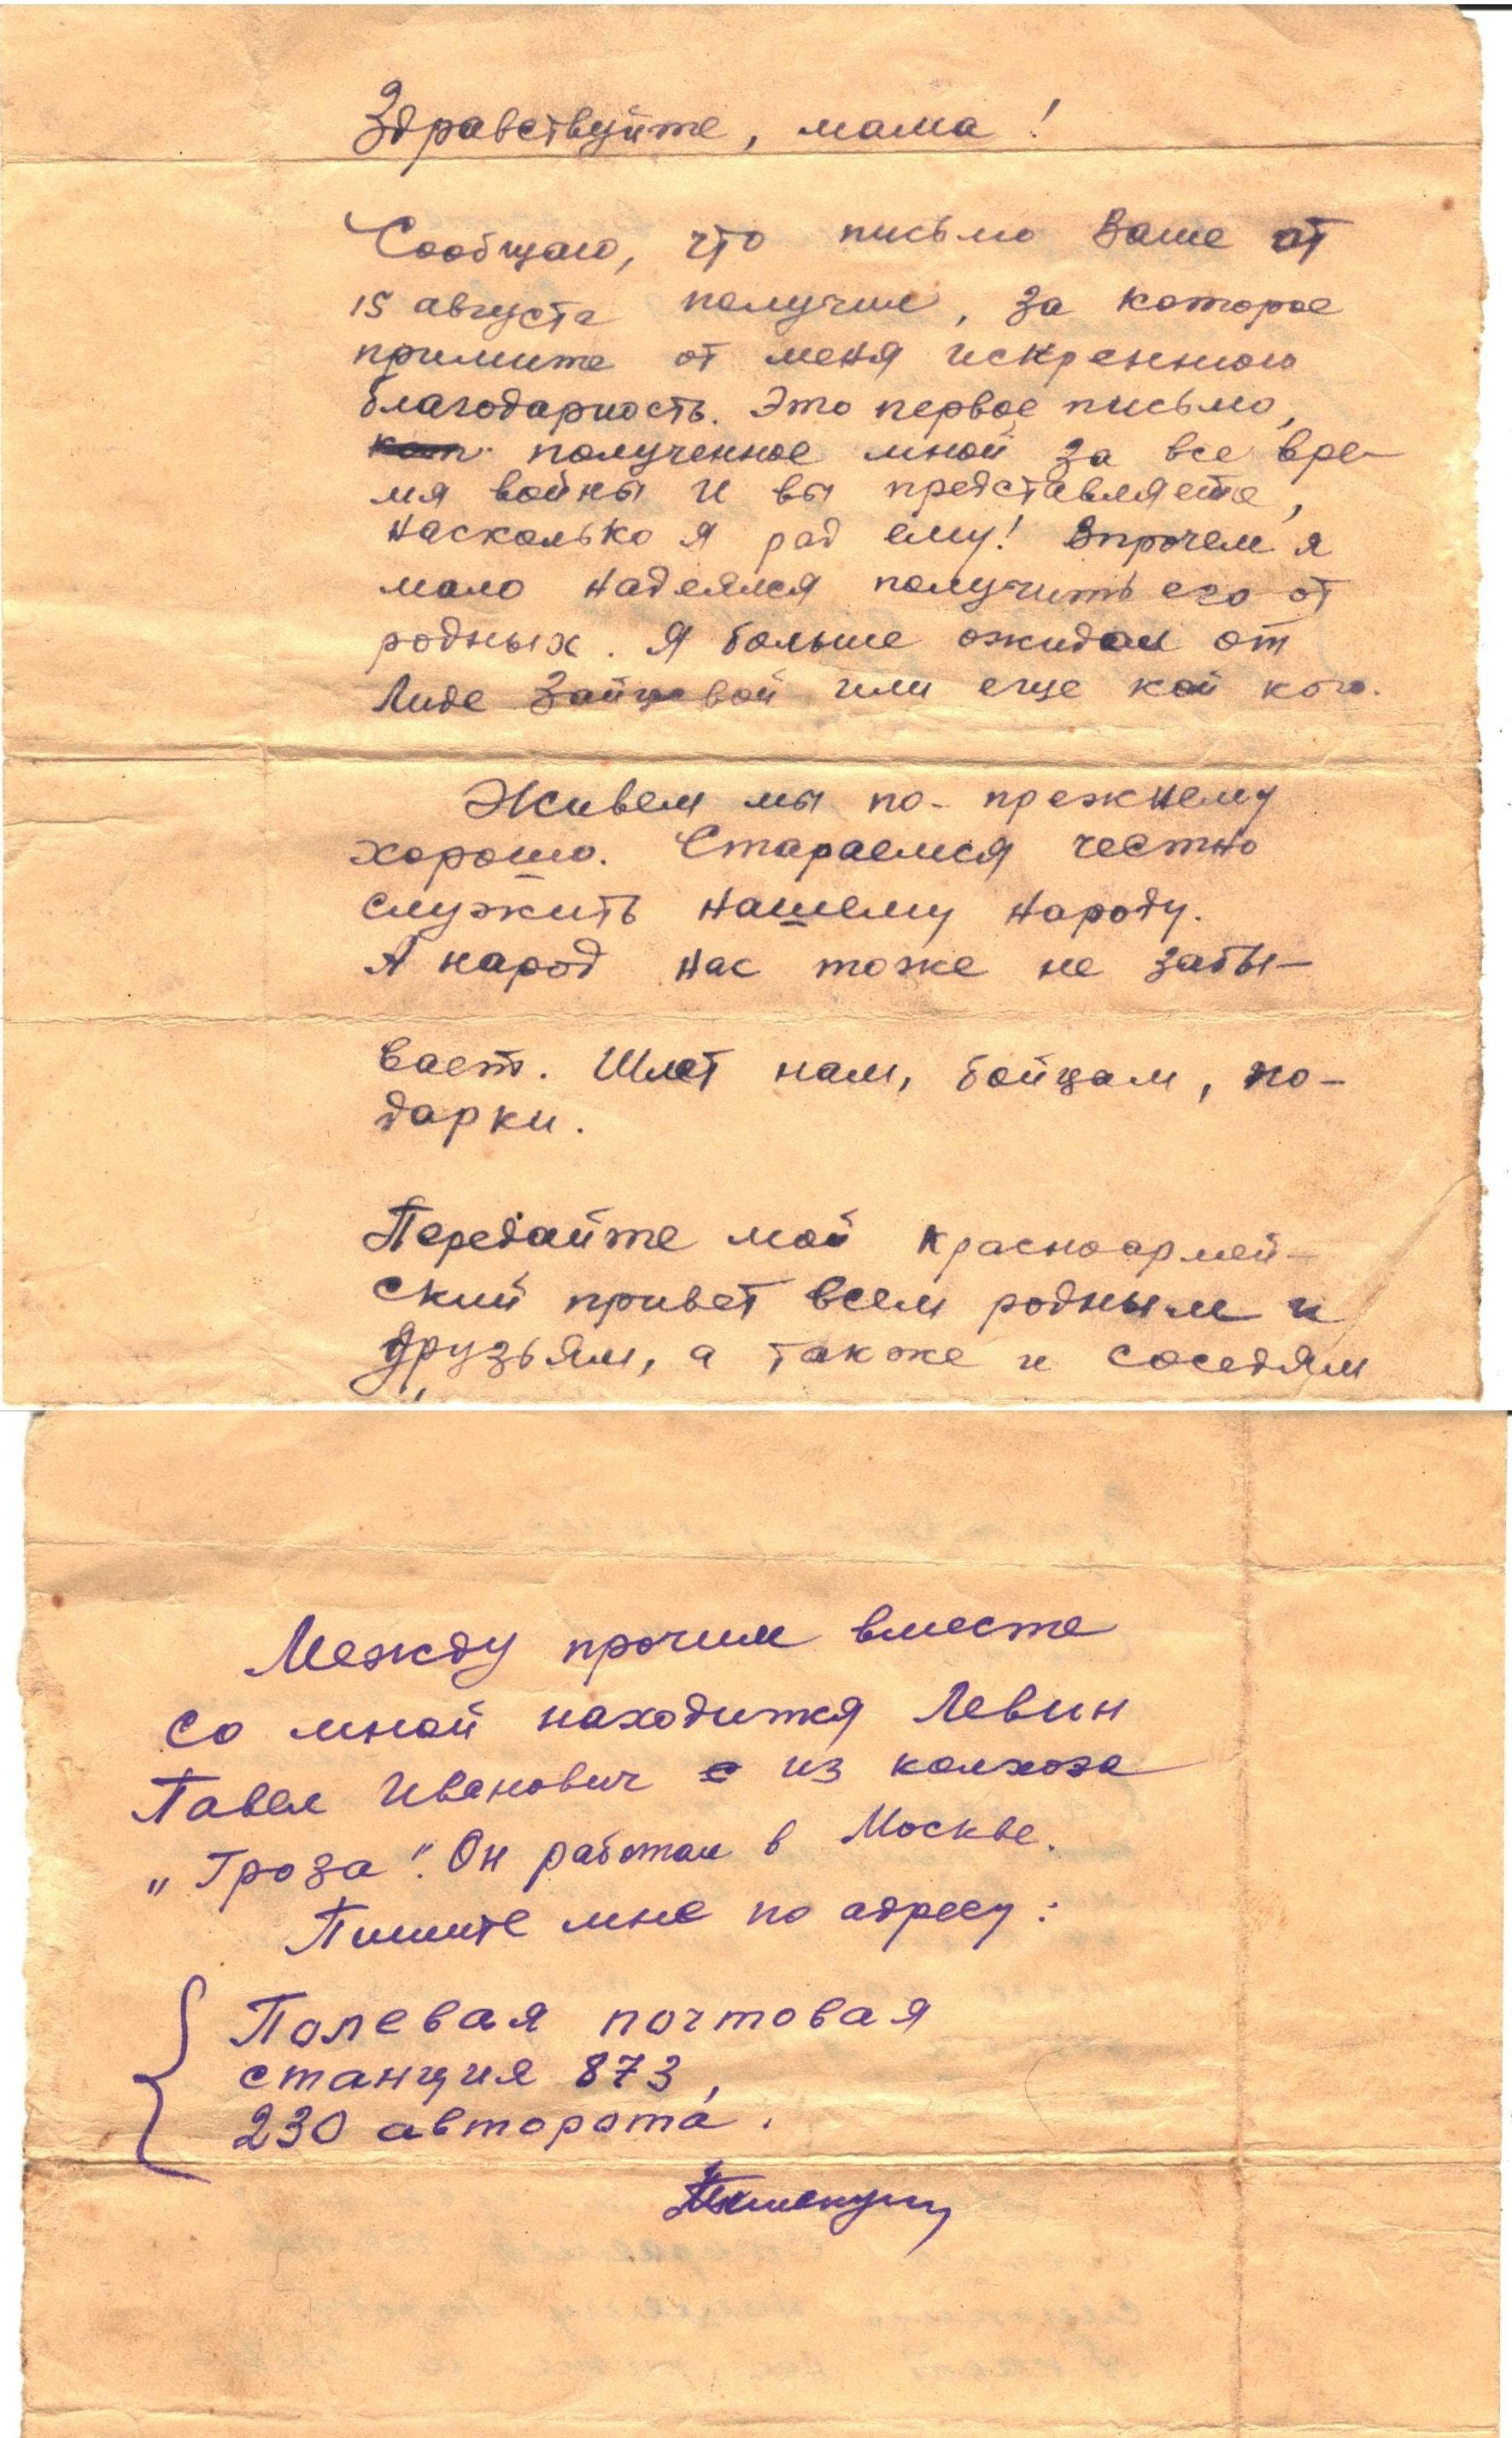 Здравствуйте, мама!
Сообщаю, что письмо Ваше от
15 августа получил, за которое
примите от меня искреннюю
благодарность. Это первое письмо,
полученное мной за все вре-
мя войны и вы представляете,
насколько я рад ему! Впрочем я
мало надеялся получить его от
родных. Я больше ожидал от
Лиде Зайцевой или еще кой кого.
Живем мы по-прежнему
хорошо. Стараемся честно
служить нашему народу.
А народ нас тоже не забы-
вает. Шлет нам, бойцам, по-
дарки.
Передайте мой красноармей-
ский привет всем родным и
друзьям, а также и соседям
Между прочим вместе
со мной находится Левин
Павел Иванович из колхоза
„Гроза". Он работал в Москве.
Пишите мне по адресу:
Полевая почтовая
станция 873,
230 авторота.